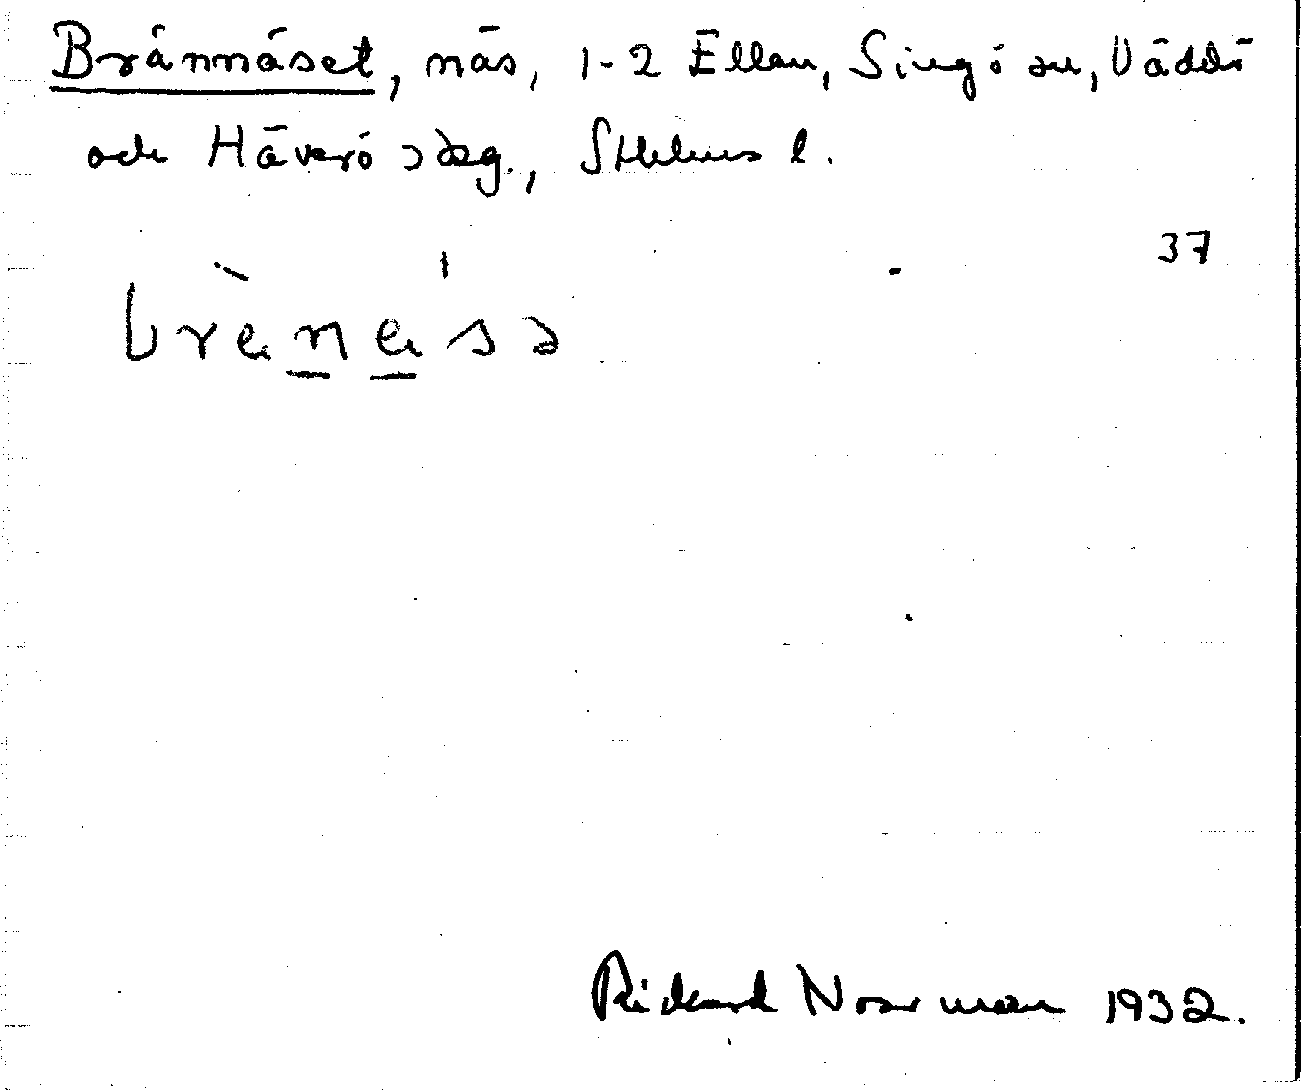 Brännäset, näs, 1-2 Ellan, Singö sn, Väddö
och Häverö skg., Sthlms l.
37
Rickard Norrman 1932.